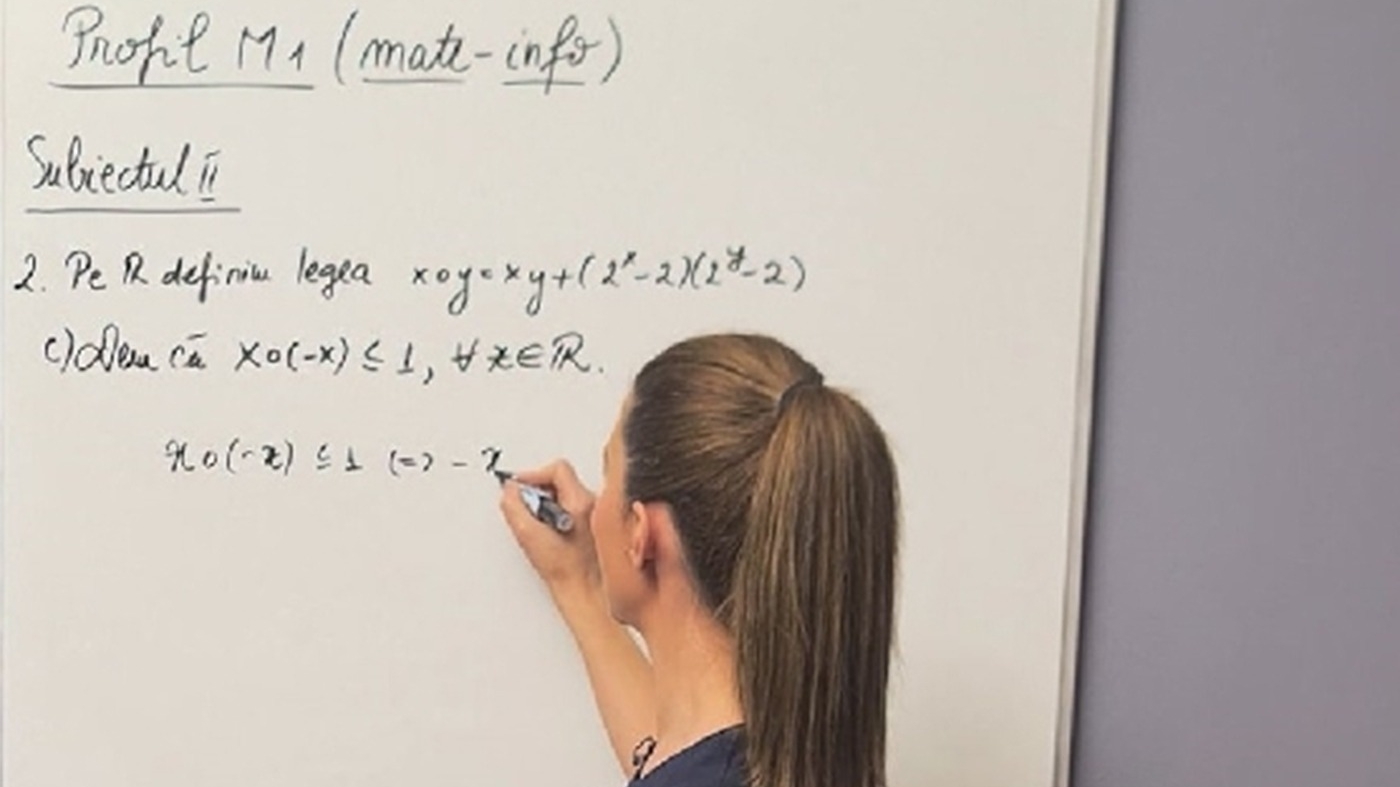 Profil M1 (mate-info)
Subiectul II
2. Pe ℝ definim legea x∘y=xy+(2^x-2)(2^y-2)
c) Dem că x∘(-x) ≤ 1, ∀ x∈ℝ.
x∘(-x) ≤ 1 (=) - x